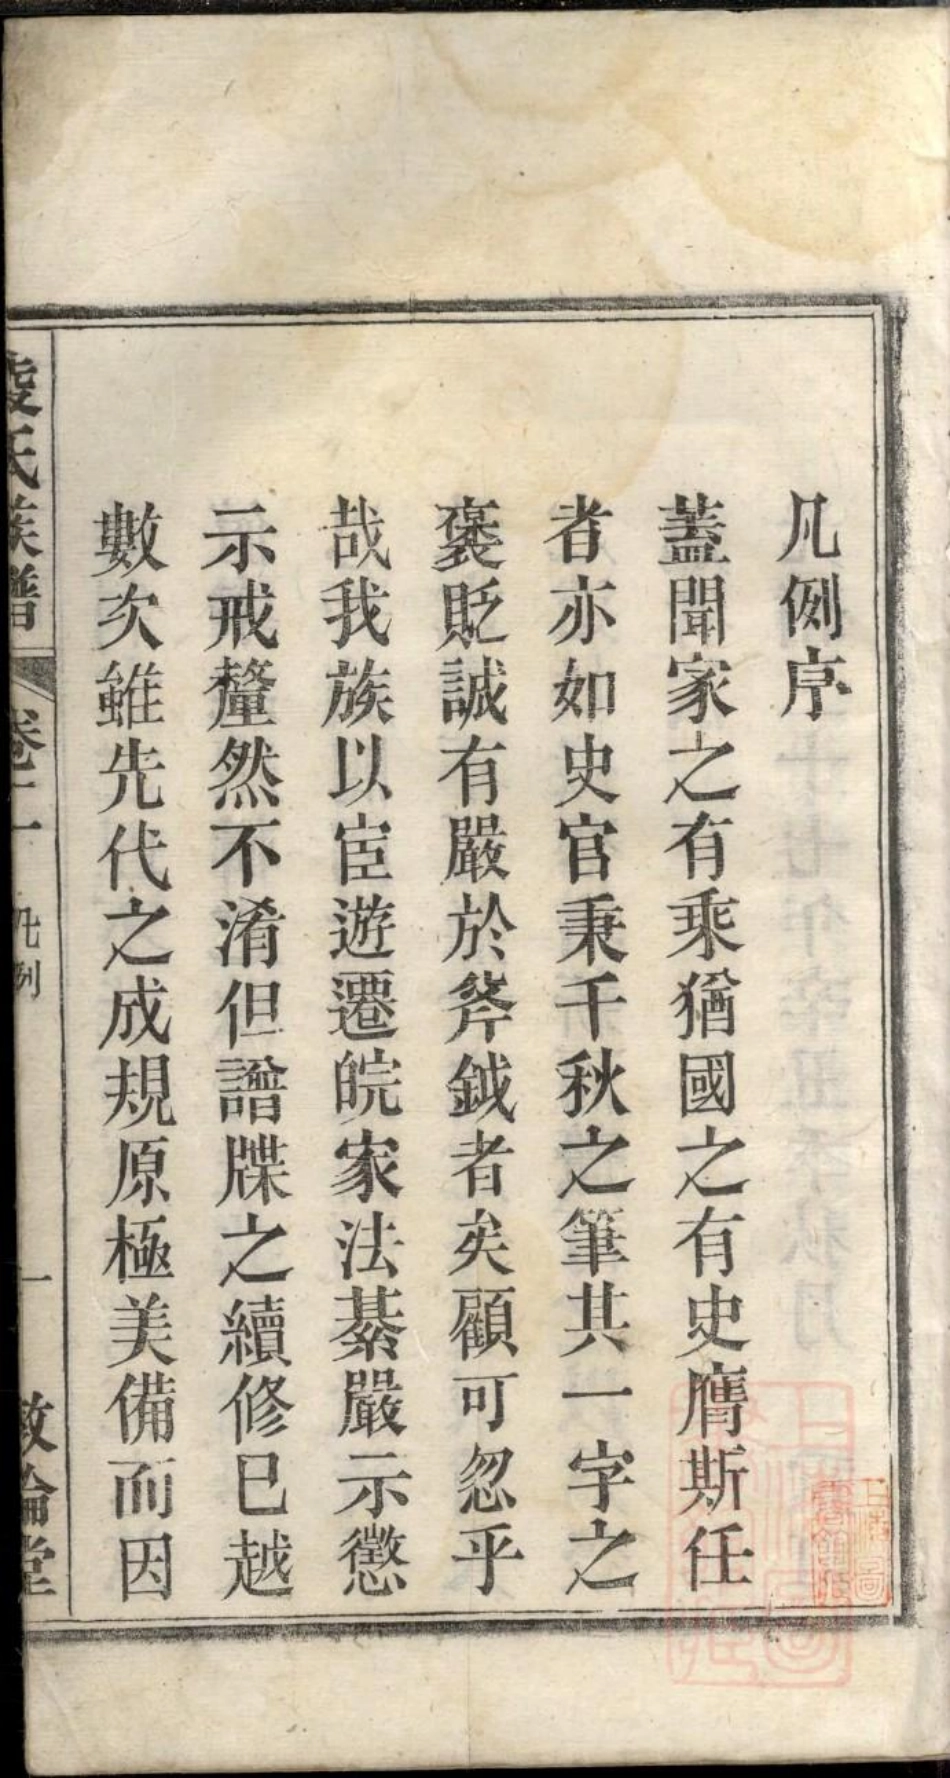 凡例序
蓋聞家之有乘猶國之有史膺斯任
者亦如史官秉千秋之筆其一字之
褒貶誠有嚴於斧鉞者矣顧可忽乎
哉我族以宦遊遷皖家法綦嚴示懲
示戒釐然不淆但譜牒之續修已越
數次雖先代之成規原極美備而因
氏族譜 卷一 凡例 一 敦倫堂